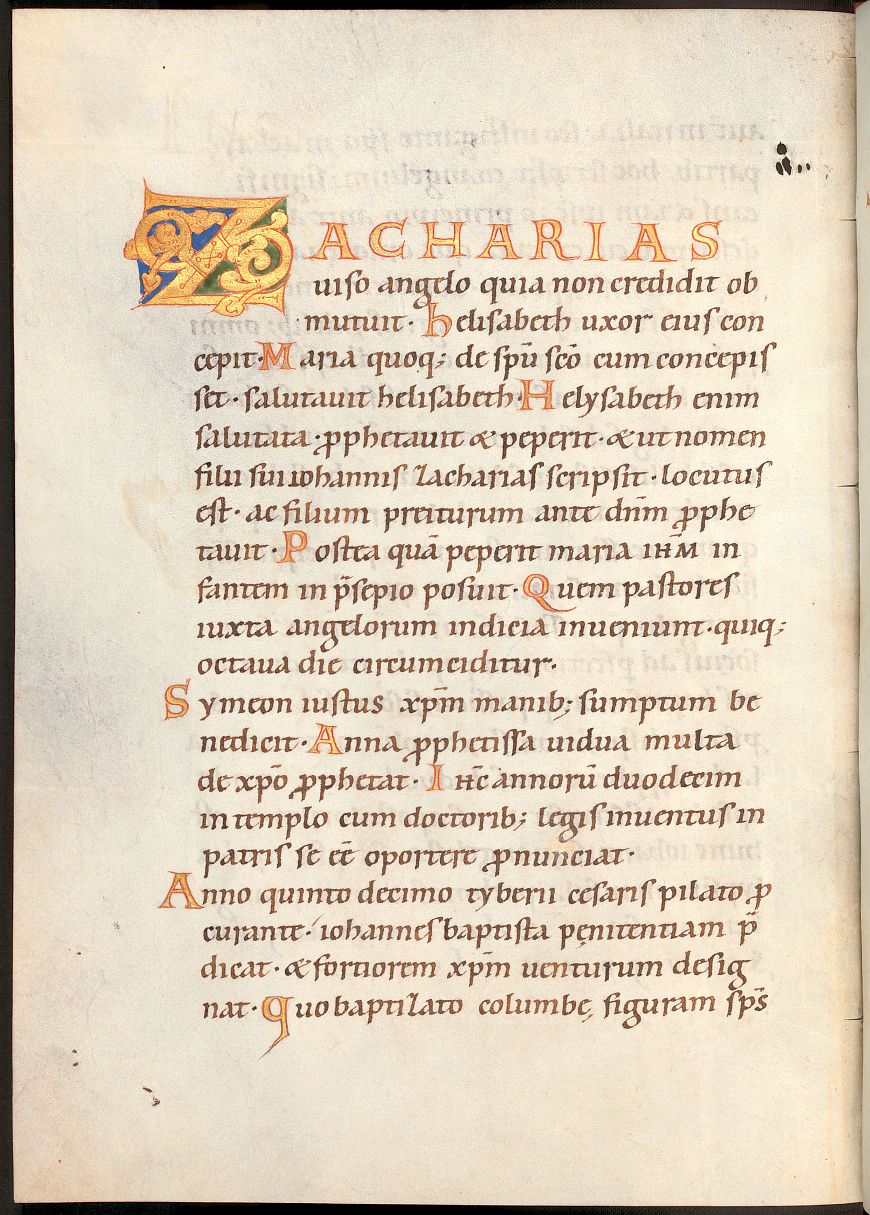 ZACHARIAS
uiso angelo quia non credidit ob
mutuit· helisabeth uxor eius con
cepit· Maria quoq; de spū scō cum concepis
set· salutauit helisabeth· Helysabeth enim
salutata· ꝓphetauit & peperit· & ut nomen
filii sui iohannis zacharias scripsit· locutus
est· ac filium preiturum ante dn̄m ꝓphe
tauit· Postea quā peperit maria ihm̄ in
fantem in p̄sepio posuit· Quem pastores
iuxta angelorum indicia inueniunt· quiq;
octaua die circumciditur·
Symeon iustus xp̄m manib; sumptum be
nedicit· Anna ꝓphetissa uidua multa
de xp̄o ꝓphetat· Ihc̄ annorū duodecim
in templo cum doctorib; legis inuentus in
patris se eē oportere ꝓnunciat·
Anno quinto decimo tyberii cesaris pilato ꝓ
curante· iohannes baptista penitentiam p̄
dicat· & fortiorem xp̄m uenturum desig
nat· quo baptizato columbę figuram sp̄s